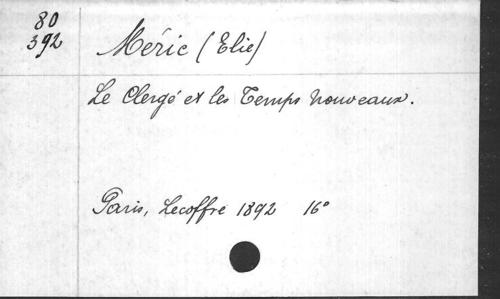 80
392
Méric (Elie)
Le Clergé et les Temps nouveaux.
Paris, Lecoffre 1892 16°